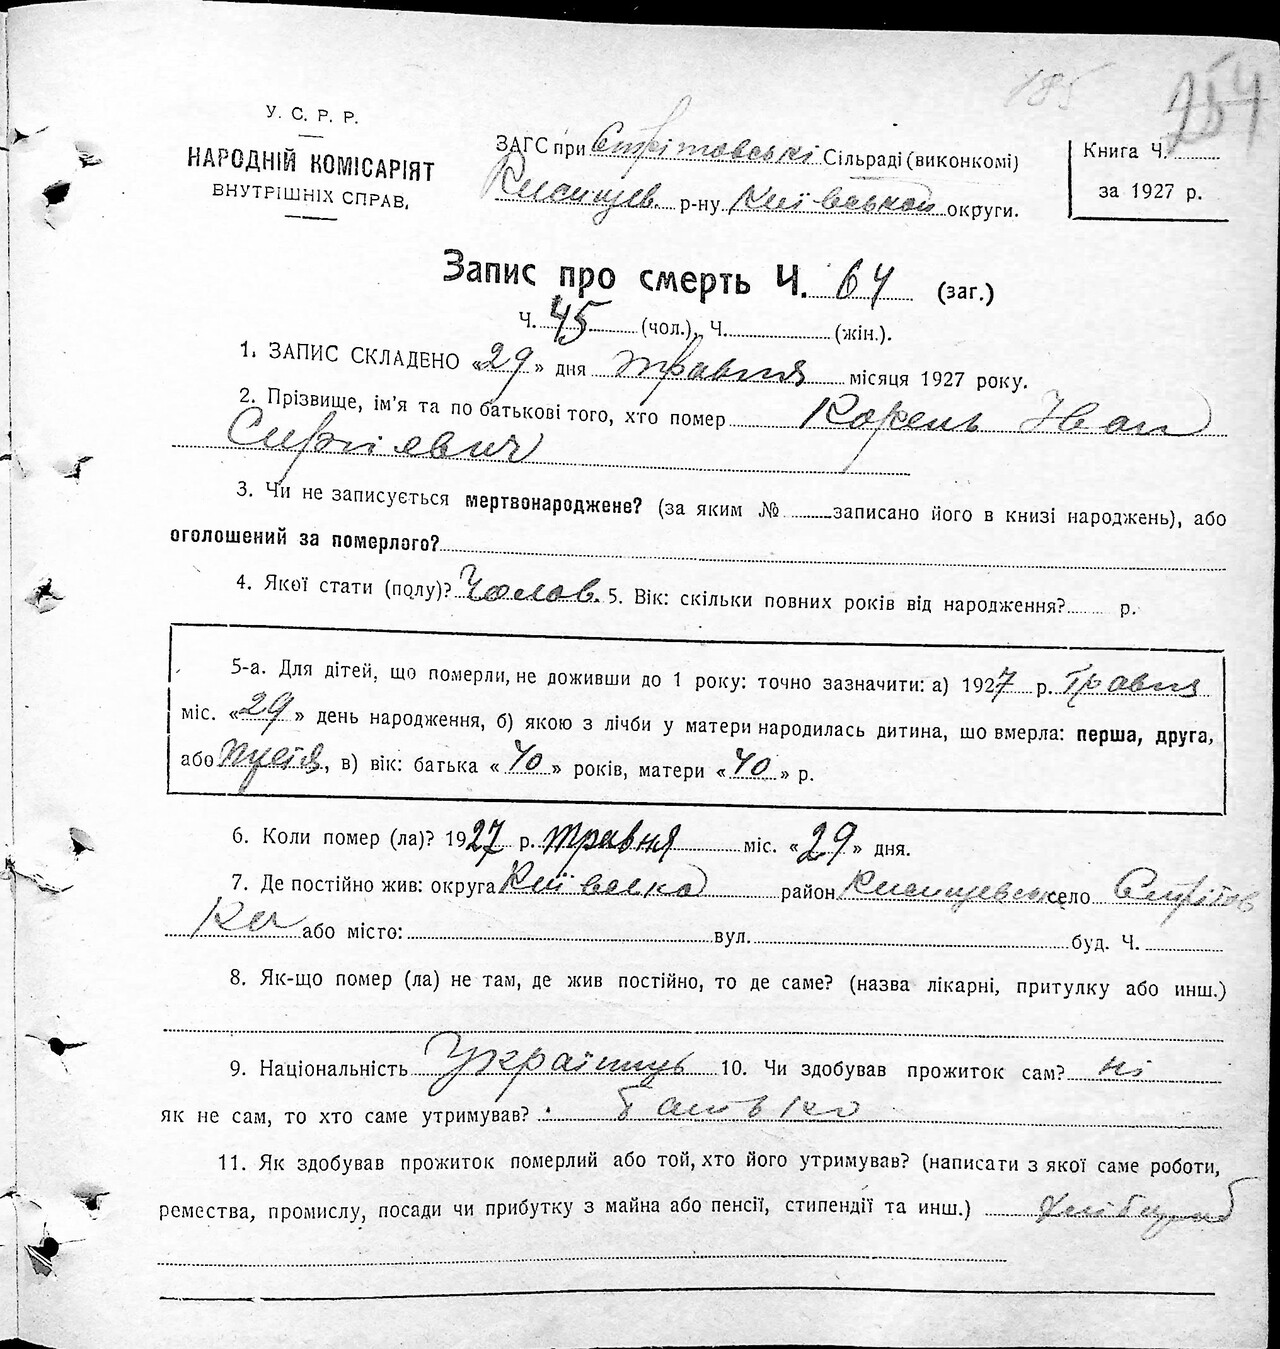 185
254
У. С. Р. Р.
НАРОДНІЙ КОМІСАРІЯТ
ВНУТРІШНІХ СПРАВ,
ЗАГС при Стрітовські Сільраді (виконкомі)
р-ну Київської округи.
Книга Ч.
за 1927 р.
Запис про смерть Ч. 64 (заг.)
Ч. 45 (чол.), Ч. (жін.).
1. ЗАПИС СКЛАДЕНО «29» дня травня місяця 1927 року.
2. Прізвище, ім'я та по батькові того, хто помер Корень Іван
Сиргієвич
3. Чи не записується мертвонароджене? (за яким № записано його в книзі народжень), або
оголошений за померлого?
4. Якої стати (полу)? Чолов. 5. Вік: скільки повних років від народження? р.
5-а. Для дітей, що померли, не доживши до 1 року: точно зазначити: а) 1927 р. Травня
міс. «29» день народження, б) якою з лічби у матери народилась дитина, що вмерла: перша, друга,
або , в) вік: батька «40» років, матери «40» р.
6. Коли помер (ла)? 1927 р. травня міс. «29» дня.
7. Де постійно жив: округа Київська район село Стрітов
ка або місто: вул. буд. Ч.
8. Як-що помер (ла) не там, де жив постійно, то де саме? (назва лікарні, притулку або инш.)
9. Національність Українець 10. Чи здобував прожиток сам? ні
як не сам, то хто саме утримував? батько
11. Як здобував прожиток померлий або той, хто його утримував? (написати з якої саме роботи,
ремества, промислу, посади чи прибутку з майна або пенсії, стипендії та инш.)